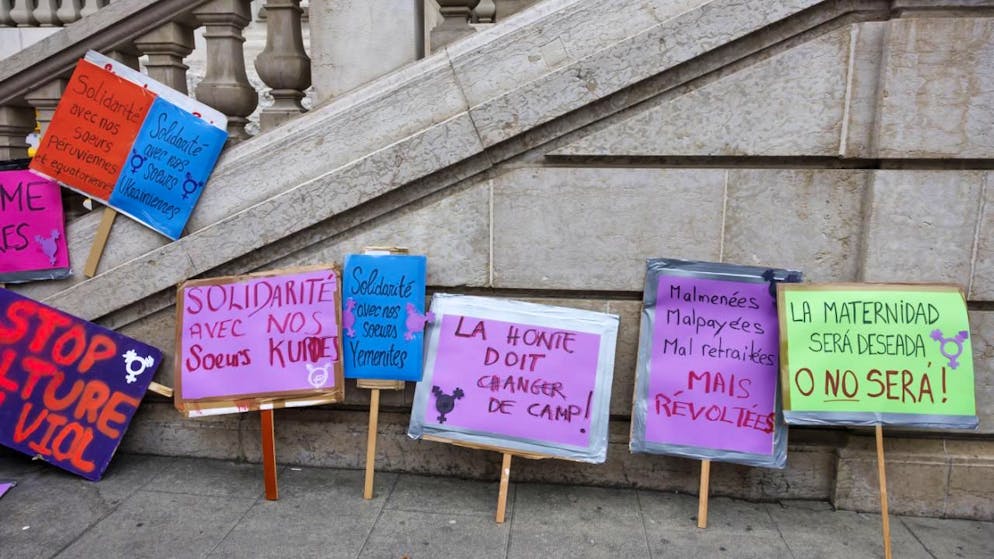 Solidarité
avec nos
soeurs
péruviennes
et équatoriennes
Solidarité
avec nos
soeurs
Ukrainiennes
ME
RES
STOP
LTURE
VIOL
SOLIDARITÉ
AVEC NOS
Soeurs KURDES
Solidarité
avec nos
soeurs
Yemenites
LA HONTE
DOIT
CHANGER
DE CAMP!
Malmenées
Malpayées
Mal retraitées
MAIS
RÉVOLTÉES
LA MATERNIDAD
SERÁ DESEADA
O NO SERÁ!